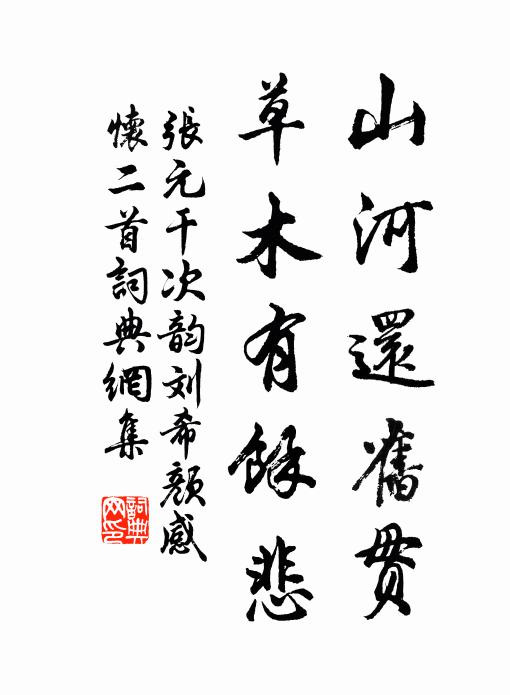 山河還舊貫
草木有餘悲
張元干次韵刘希顏感
懷二首詞典網集
詞典
网印